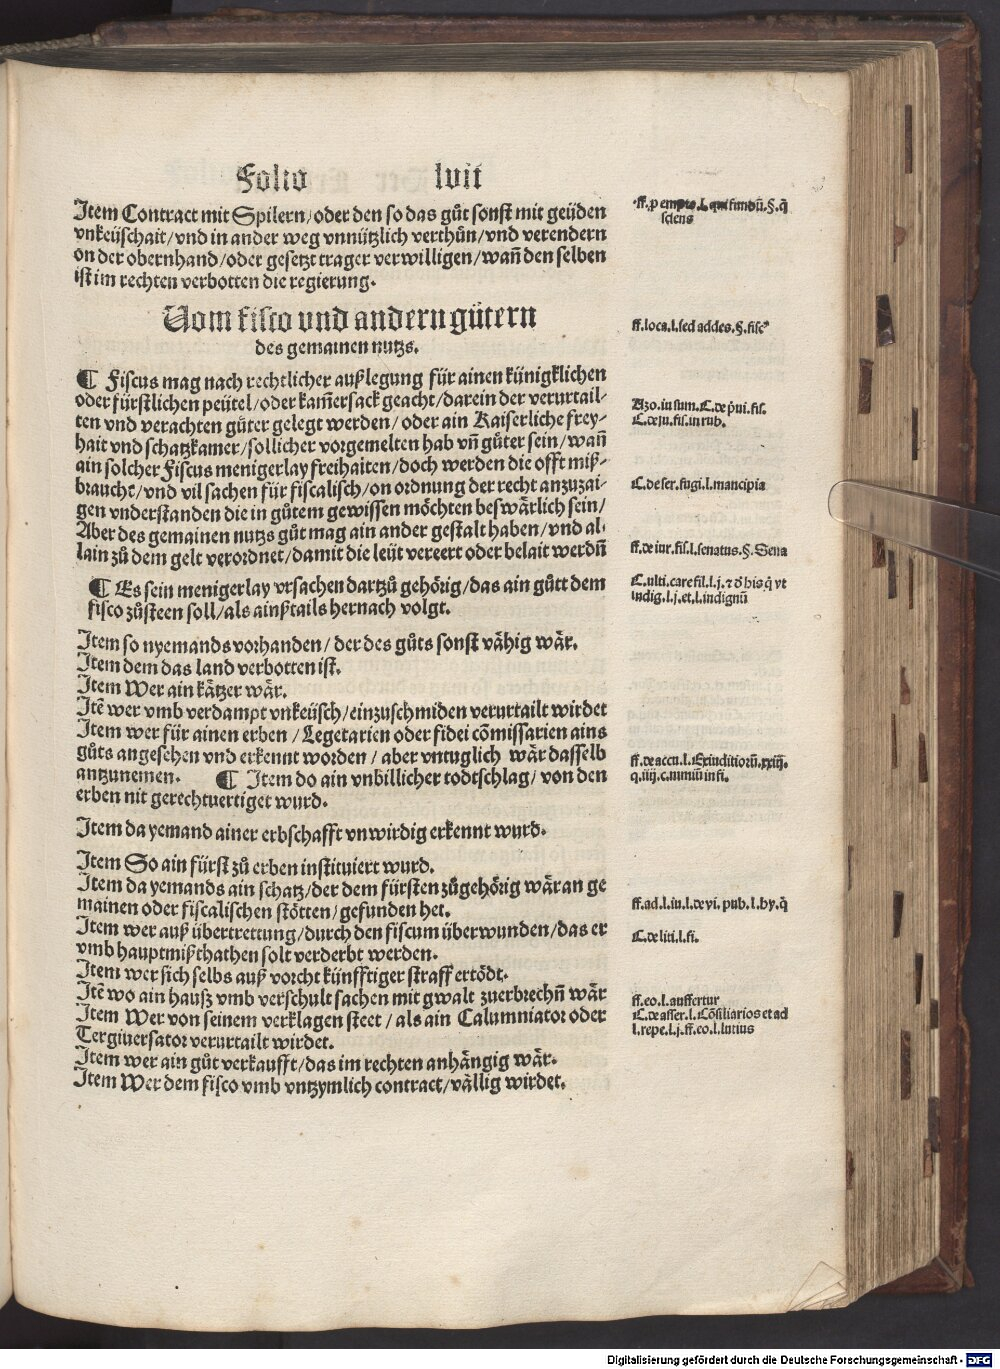 Folio lvii
Item Contract mit Spilern/oder den so das gůt sonst mit geüden
vnkeüschait/vnd in ander weg vnnützlich verthůn/vnd verendern
on der obernhand/oder gesetzt trager verwilligen/wañ den selben
ist im rechten verbotten die regierung.
ff.p empto.l.qui fundū.§.q̄
sciens
Vom fisco vnd andern gůtern
des gemainen nutzs.
ff.loca.l.sed addes.§.fisc⁹
¶ Fiscus mag nach rechtlicher außlegung für ainen künigklichen
oder fürstlichen peütel/oder kam̄ersack geacht/darein der verurtail⸗
ten vnd verachten güter gelegt werden/oder ain Kaiserliche frey⸗
hait vnd schatzkamer/sollicher vorgemelten hab vn̄ gůter sein/wañ
ain solcher Fiscus menigerlay freihaiten/doch werden die offt miß⸗
braucht/vnd vil sachen für fiscalisch/on ordnung der recht anzuzai⸗
gen vnderstanden die in gůtem gewissen möchten beswärlich sein/
Aber des gemainen nutzs gůt mag ain ander gestalt haben/vnd al⸗
lain zů dem gelt verordnet/damit die leüt vereert oder belait werdn̄
Azo.iu sum.C.de p̄ui.fis.
C.de iu.fis.in rub.
C.de ser.fugi.l.mancipia
ff.de iur.fis.l.senatus.§.Sena
¶ Es sein menigerlay vrsachen dartzů gehörig/das ain gůtt dem
fisco zůsteen soll/als ainßtails hernach volgt.
C.ulti.care fil.l.j.⁊ d̄ his q̄ vt
indig.l.j.et.l.indignū
Item so nyemands vorhanden/der des gůts sonst vähig wär.
Item dem das land verbotten ist.
Item Wer ain kätzer wär.
Itē wer vmb verdampt vnkeüsch/einzuschmiden verurtailt wirdet
Item wer für ainen erben/Legetarien oder fidei cōmissarien ains
gůts angesehen vnd erkennt worden/aber vntuglich wär dasselb
antzunemen. ¶ Item do ain vnbillicher todtschlag/von den
erben nit gerechtuertiget wurd.
ff.de accu.l.Exiuditiorū.xxiij.
q.iiij.c.nimiū in fi.
Item da yemand ainer erbschafft vnwirdig erkennt wurd.
Item So ain fürst zů erben instituiert wurd.
Item da yemands ain schatz/der dem fürsten zůgehörig wär an ge
mainen oder fiscalischen stötten/gefunden het.
Item wer auß übertrettung/durch den fiscum überwunden/das er
vmb hauptmißthathen solt verderbt werden.
Item wer sich selbs auß vorcht künfftiger straff ertödt.
Itē wo ain hauß vmb verschult sachen mit gwalt zuerbrechn̄ wär
Item Wer von seinem verklagen steet/als ain Calumniator oder
Tergiuersator verurtailt wirdet.
Item wer ain gůt verkaufft/das im rechten anhängig wär.
Item Wer dem fisco vmb vntzymlich contract/vällig wirdet.
ff.ad.l.iu.l.de vi.pub.l.by.q̄
C.de liti.l.fi.
ff.eo.l.auffertur
C.de asser.l.Cōsiliarios et ad
l.repe.l.j.ff.eo.l.lutius
Digitalisierung gefördert durch die Deutsche Forschungsgemeinschaft - DFG